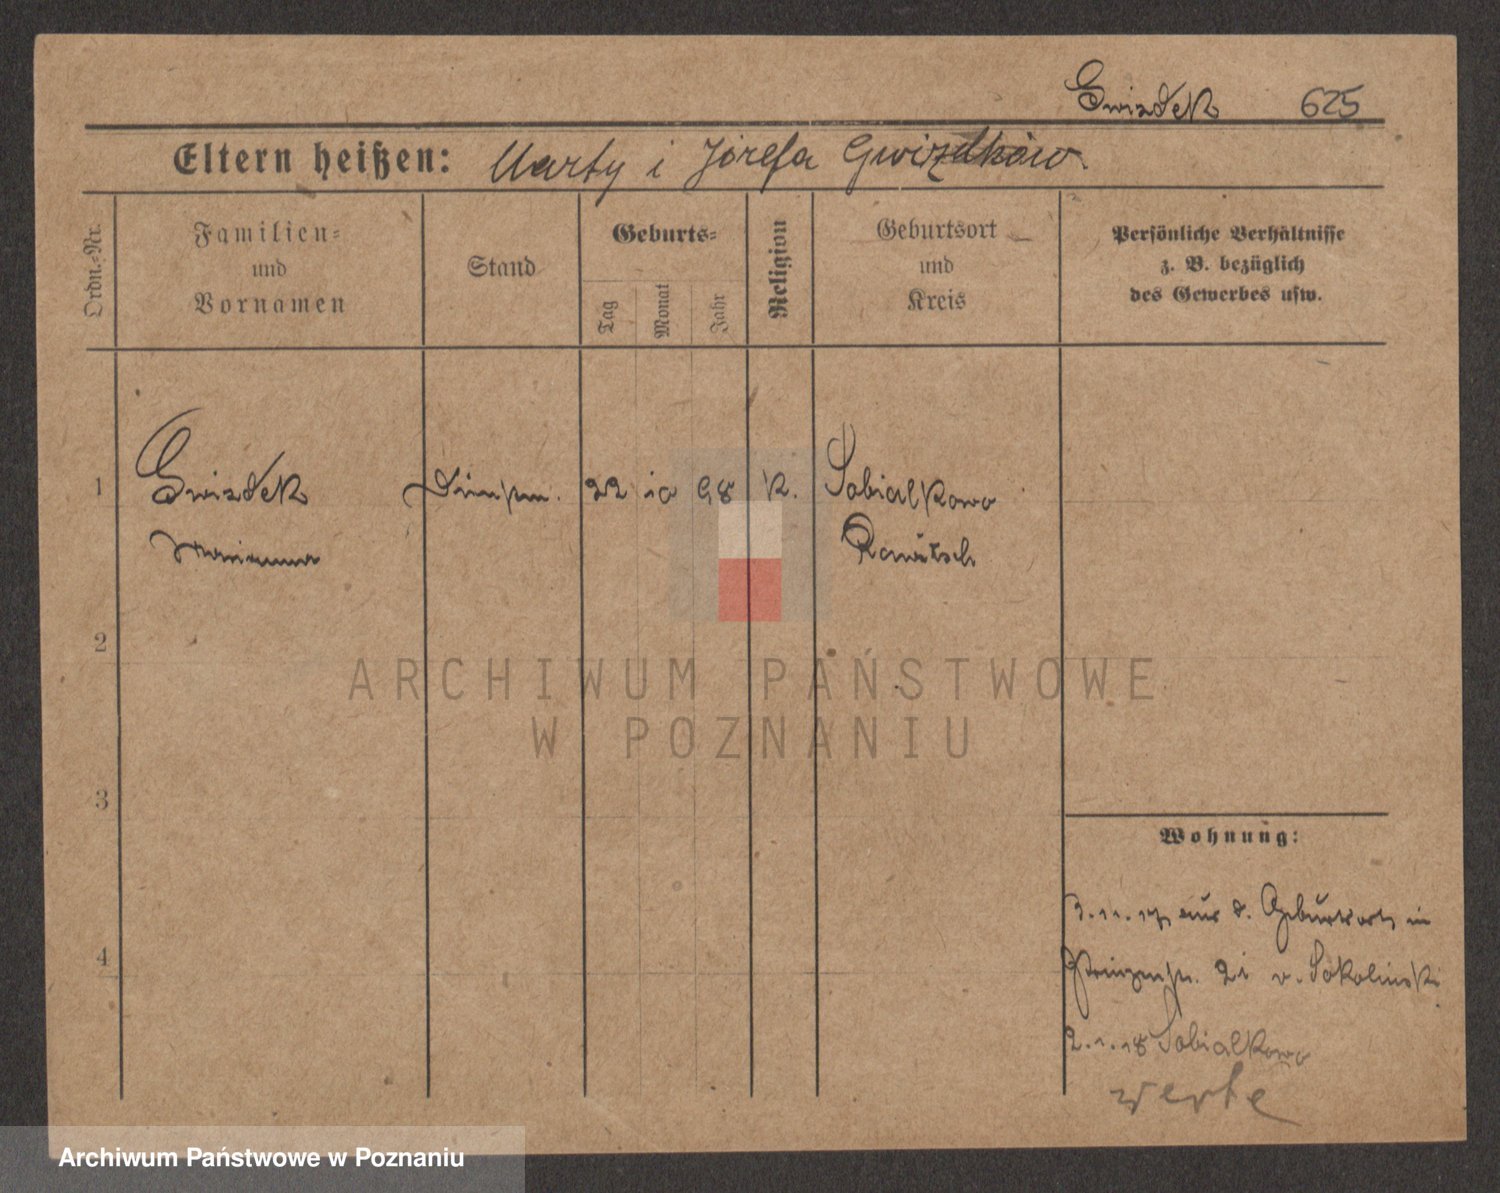 Gwizdek 625
Eltern heißen: Marty i Józefa Gwizdków.
Ordn.-Nr.
Familien-
und
Vornamen
Stand
Geburts-
Tag
Monat
Jahr
Religion
Geburtsort
und
Kreis
Persönliche Verhältnisse
z. B. bezüglich
des Gewerbes usw.
1 Gwizdek Dienstm. 22 10 98 k. Sobialkowo
Marianna Rawitsch
2
3
4
Wohnung:
3.11.17 aus d. Geburtsort, in
Prinzenstr. 21 v. Sokolinski
2.1.18 Sobialkowo
ARCHIWUM PAŃSTWOWE
W POZNANIU
Archiwum Państwowe w Poznaniu